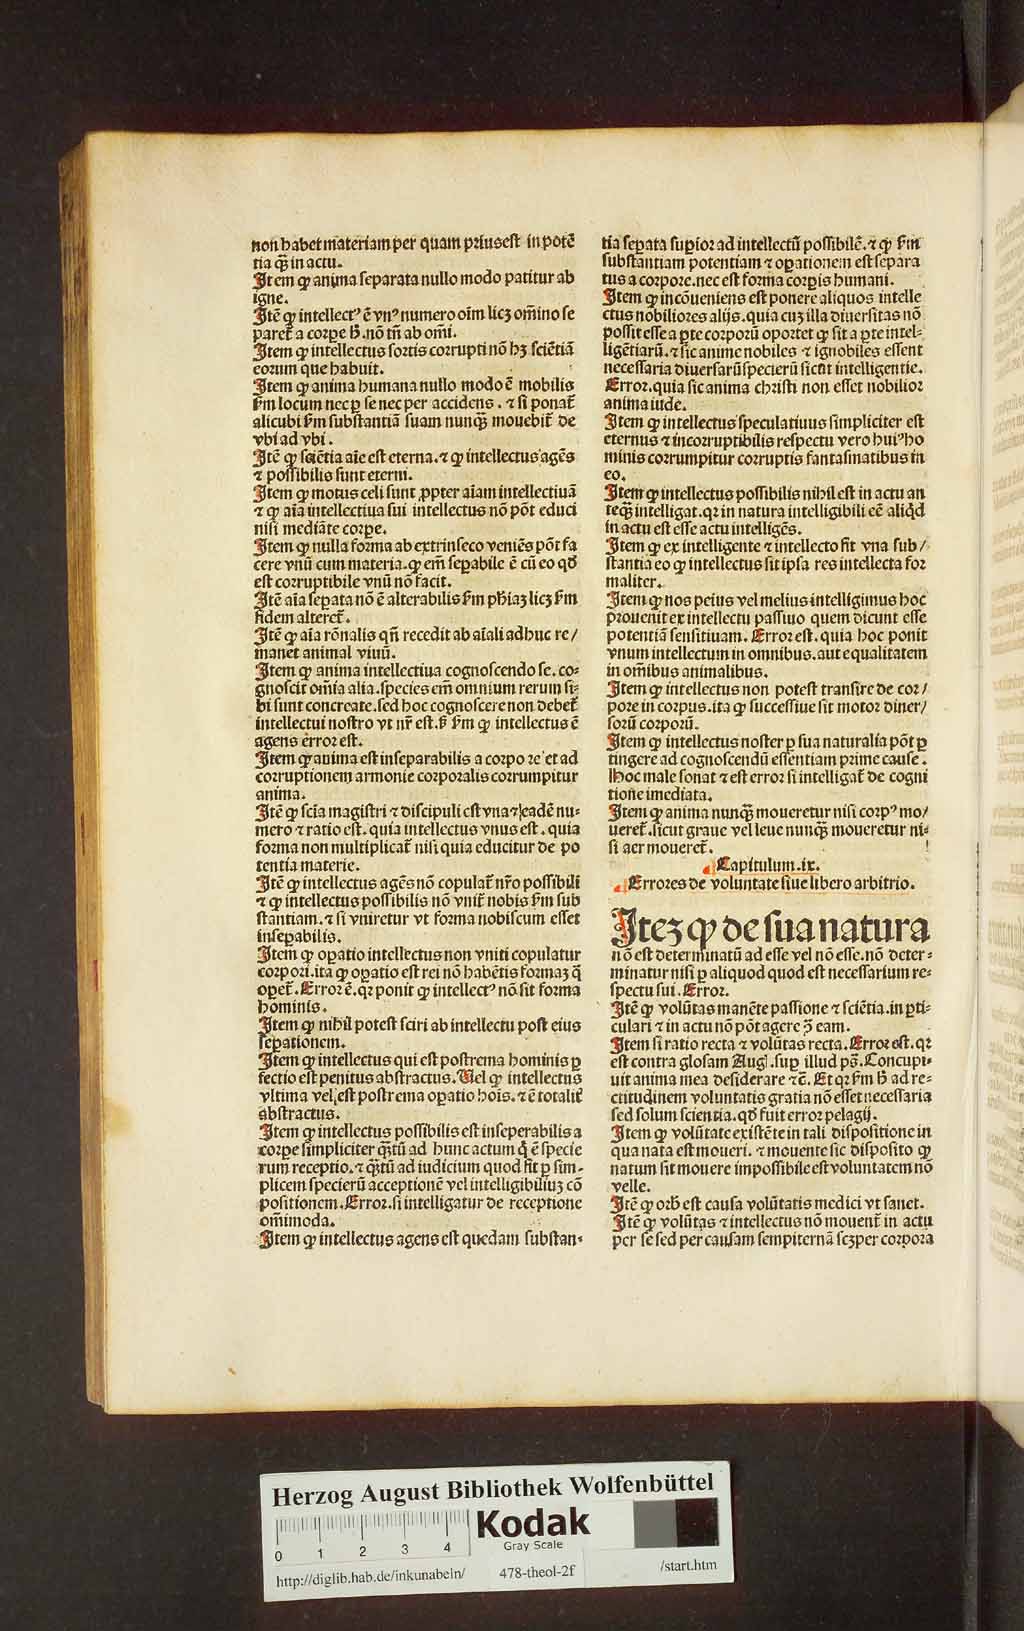 non habet materiam per quam prius est in potē
tia qꝫ in actu.
Item ꝙ anima separata nullo modo patitur ab
igne.
Itē ꝙ intellectꝰ ē vnꝰ numero oīm licꝫ om̄ino se
paret̄ a corꝑe h̄. nō tn̄ ab om̄i.
Item ꝙ intellectus sortis corrupti nō hꝫ sciētiā
eorum que habuit.
Item ꝙ anima humana nullo modo ē mobilis
fm̄ locum nec ꝑ se nec per accidens. ⁊ si ponat̄
alicubi fm̄ substantiā suam nunqꝫ mouebit̄ de
vbi ad vbi.
Itē ꝙ sciētia aīe est eterna. ⁊ ꝙ intellectus agēs
⁊ possibilis sunt eterni.
Item ꝙ motus celi sunt ꝓpter aīam intellectiuā
⁊ ꝙ aīa intellectiua siui intellectus nō pōt educi
nisi mediāte corꝑe.
Item ꝙ nulla forma ab extrinseco veniēs pōt fa
cere vnū cum materia. ꝙ em̄ seꝑabile ē cū eo qd̄
est corruptibile vnū nō facit.
Itē aīa seꝑata nō ē alterabilis fm̄ ph̄iaꝫ licꝫ fm̄
fidem alteret̄.
Itē ꝙ aīa rōnalis qn̄ recedit ab aīali adhuc re/
manet animal viuū.
Item ꝙ anima intellectiua cognoscendo se. co-
gnoscit om̄ia alia. species em̄ omnium rerum si-
bi sunt concreate. sed hoc cognoscere non debet̄
intellectui nostro vt nr̄ est. s̄ fm̄ ꝙ intellectus ē
agens error est.
Item ꝙ anima est inseparabilis a corpore et ad
corruptionem armonie corporalis corrumpitur
anima.
Itē ꝙ scīa magistri ⁊ discipuli est vna ⁊ eadē nu-
mero ⁊ ratio est. quia intellectus vnus est. quia
forma non multiplicat̄ nisi quia educitur de po
tentia materie.
Itē ꝙ intellectus agēs nō copulat̄ nr̄o possibili
⁊ ꝙ intellectus possibilis nō vnit̄ nobis fm̄ sub
stantiam. ⁊ si vniretur vt forma nobiscum esset
inseꝑabilis.
Item ꝙ oꝑatio intellectus non vniti copulatur
corpori. ita ꝙ oꝑatio est rei nō habētis formaꝫ q̄
oꝑet̄. Error ē. qꝛ ponit ꝙ intellectꝰ nō sit forma
hominis.
Item ꝙ nihil potest sciri ab intellectu post eius
seꝑationem.
Item ꝙ intellectus qui est postrema hominis ꝑ
fectio est penitus abstractus. Uel ꝙ intellectus
vltima vel est postrema oꝑatio hoīs. ⁊ ē totalit̄
abstractus.
Item ꝙ intellectus possibilis est inseperabilis a
corꝑe simpliciter qꝫtū ad hunc actum q̄ ē specie
rum receptio. ⁊ qꝫtū ad iudicium quod fit ꝑ sim-
plicem specierū acceptionē vel intelligibiliuꝫ cō
positionem. Error. si intelligatur de receptione
om̄imoda.
Item ꝙ intellectus agens est quedam substan-
tia seꝑata suꝑior ad intellectū possibilē. ⁊ ꝙ fm̄
substantiam potentiam ⁊ oꝑationem est separa
tus a corpore. nec est forma corꝑis humani.
Item ꝙ incōueniens est ponere aliquos intelle
ctus nobiliores alijs. quia cuꝫ illa diuersitas nō
possit esse a ꝑte corporū oportet ꝙ sit a ꝑte intel-
ligētiarū. ⁊ sic anime nobiles ⁊ ignobiles essent
necessaria diuersarū specierū sicut intelligentie.
Error. quia sic anima christi non esset nobilior
anima iude.
Item ꝙ intellectus speculatiuus simpliciter est
eternus ⁊ incorruptibilis respectu vero huiꝰ ho
minis corrumpitur corruptis fantasmatibus in
eo.
Item ꝙ intellectus possibilis nihil est in actu an
teqꝫ intelligat. qꝛ in natura intelligibili eē aliq̄d
in actu est esse actu intelligēs.
Item ꝙ ex intelligente ⁊ intellecto fit vna sub/
stantia eo ꝙ intellectus sit ipsa res intellecta for
maliter.
Item ꝙ nos peius vel melius intelligimus hoc
prouenit ex intellectu passiuo quem dicunt esse
potentiā sensitiuam. Error est. quia hoc ponit
vnum intellectum in omnibus. aut equalitatem
in om̄ibus animalibus.
Item ꝙ intellectus non potest transire de cor/
pore in corpus. ita ꝙ successiue sit motor diuer/
sorū corporū.
Item ꝙ intellectus noster ꝑ sua naturalia pōt ꝑ
tingere ad cognoscendū essentiam prime cause.
Hoc male sonat ⁊ est error si intelligat̄ de cogni
tione imediata.
Item ꝙ anima nunqꝫ moueretur nisi corpꝰ mo/
ueret̄. sicut graue vel leue nunqꝫ moueretur ni-
si aer moueret̄.
Capitulum. ix.
Errores de voluntate siue libero arbitrio.
Iteꝫ ꝙ de sua natura
nō est determinatū ad esse vel nō esse. nō deter-
minatur nisi ꝑ aliquod quod est necessarium re-
spectu sui. Error.
Itē ꝙ volūtas manēte passione ⁊ sciētia. in ꝑti-
culari ⁊ in actu nō pōt agere ꝯ̄ eam.
Item si ratio recta ⁊ volūtas recta. Error est. qꝛ
est contra glosam Aug. suꝑ illud ps̄. Concupi-
uit anima mea desiderare ⁊c̄. Et qꝛ fm̄ h̄ ad re-
ctitudinem voluntatis gratia nō esset necessaria
sed solum scientia. qd̄ fuit error pelagij.
Item ꝙ volūtate existēte in tali dispositione in
qua nata est moueri. ⁊ mouente sic disposito ꝙ
natum sit mouere impossibile est voluntatem nō
velle.
Itē ꝙ orb̄ est causa volūtatis medici vt sanet.
Itē ꝙ volūtas ⁊ intellectus nō mouent̄ in actu
per se sed per causam sempiternā scꝫ per corpora
Herzog August Bibliothek Wolfenbüttel
Kodak
Gray Scale
0 1 2 3 4
http://diglib.hab.de/inkunabeln/ 478-theol-2f /start.htm